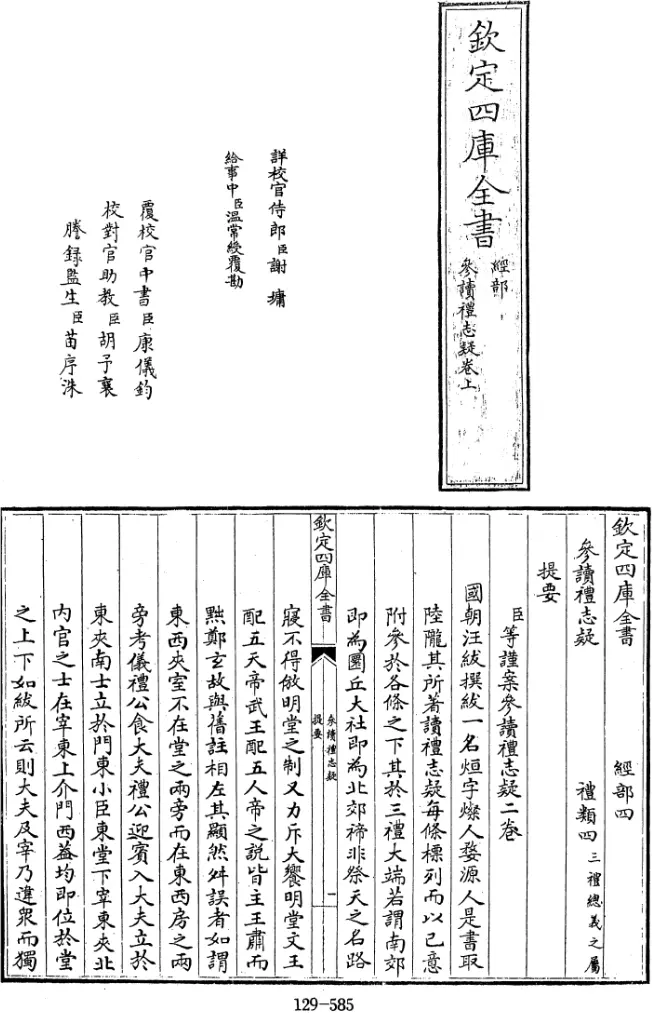 欽定四庫全書
經部
參讀禮志疑卷上
詳校官侍郎臣謝墉
給事中臣溫常綬覆勘
覆校官中書臣康儀鈞
校對官助教臣胡予襄
謄錄監生臣苗序洙
欽定四庫全書 經部四
參讀禮志疑 禮類四 三禮總義之屬
提要
臣等謹案參讀禮志疑二卷
國朝汪紱撰紱一名烜字燦人婺源人是書取
陸隴其所著讀禮志疑每條標列而以已意
附參於各條之下其於三禮大端若謂南郊
即為圜丘大社即為北郊禘非祭天之名路
欽定四庫全書
參讀禮志疑
提要
一
寢不得倣明堂之制又力斥大饗明堂文王
配五天帝武王配五人帝之說皆主王肅而
黜鄭玄故與舊註相左其顯然舛誤者如謂
東西夾室不在堂之兩旁而在東西房之兩
旁考儀禮公食大夫禮公迎賓入大夫立於
東夾南士立於門東小臣東堂下宰東夾北
內官之士在宰東上介門西葢均即位於堂
之上下如紱所云則大夫及宰乃違眾而獨
129-585